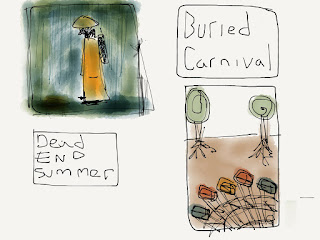 Buried
Carnival
Dead
END
Summer